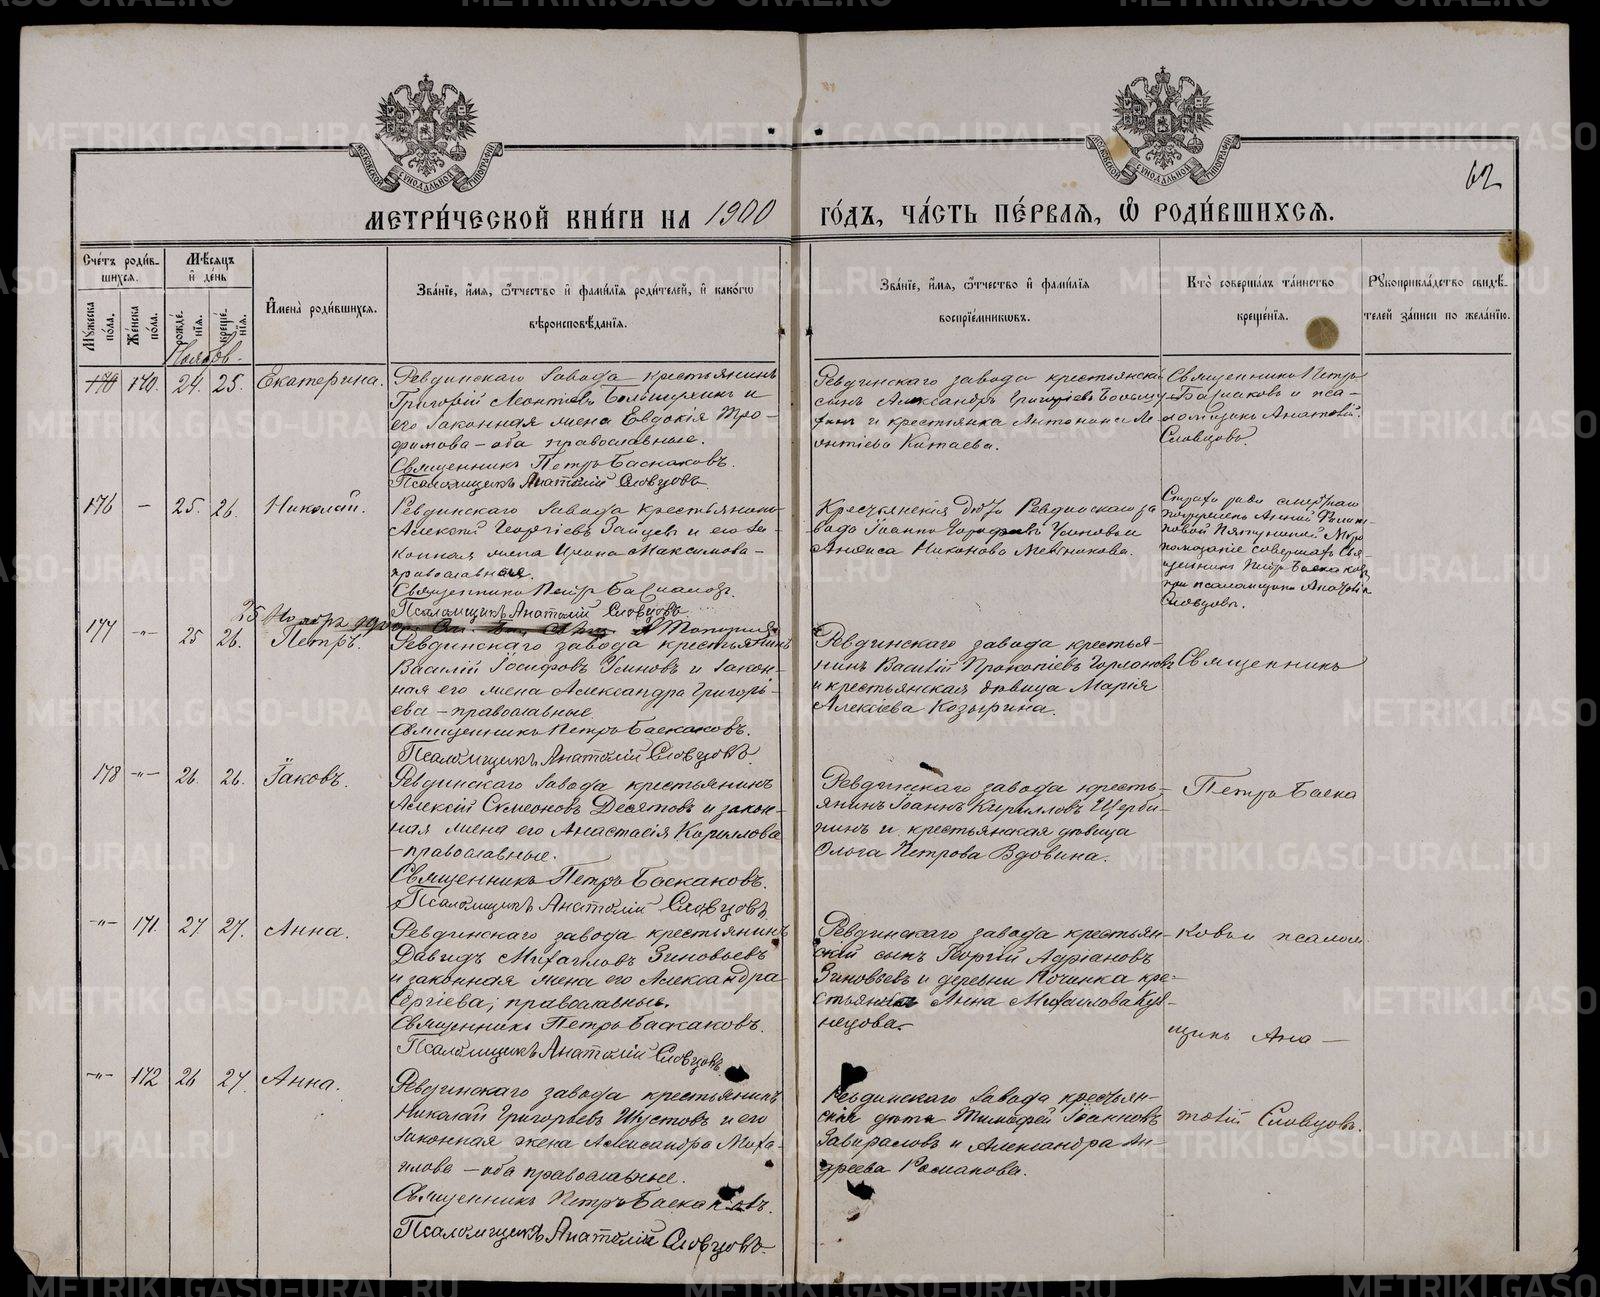 МЕТРИ́ЧЕСКОЙ КНИ́ГИ НА 1900 ГО́ДЪ, ЧА́СТЬ ПЕ́РВАѦ, Ѡ҆ РОДИ́ВШИХСѦ.
62
Сче́тъ роди́в-
шихсѧ.
Мꙋ́жеска по́ла.
Же́нска по́ла.
Мѣ́сѧцъ
и҆ де́нь
рожде́-
нїѧ.
креще́-
нїѧ.
И҆мена̀ роди́вшихсѧ.
Зва́нїе, и҆́мѧ, ѻ҆́тчество и҆ фами́лїѧ роди́телей, и҆ како́гѡ
вѣроисповѣ́данїѧ.
Зва́нїе, и҆́мѧ, ѻ҆́тчество и҆ фами́лїѧ
воспрїе́мникѡвъ.
Кто̀ соверша́лъ та́инство
креще́нїѧ.
Рꙋкоприкла́дство свидѣ́-
телей за́писи по жела́нїю.
Ноябрь.
170. 24. 25. Екатерина.
Ревдинскаго завода крестьянинъ
Григорій Леонтіевъ и
его законная жена Евдокія Тро-
фимова – оба православные.
Священникъ Петръ Баскаковъ.
Псаломщикъ Анатолій Словцовъ.
Ревдинскаго завода крестьянскій
сынъ Александръ Григорьевъ
и крестьянка Антонина Ле-
онтіева Китаева.
Священникъ Петръ
Баскаковъ и пса-
ломщикъ Анатолій
Словцовъ.
176 – 25. 26. Николай.
Ревдинскаго завода крестьянинъ
Алексѣй Георгіевъ Зайцевъ и его за-
конная жена Ирина Максимова –
православные.
Священникъ Петръ Баскаковъ.
Псаломщикъ Анатолій Словцовъ
Крестьянскія дѣти Ревдинскаго за
вода Іоаннъ
Никонова
Страха ради смертнаго
погруженъ Анной
Мѵро
помазаніе совершалъ Свя-
щенникъ Петръ Баскаковъ
при псаломщикѣ Анатоліи
Словцовѣ.
177 -"- 25 26. Петръ.
Ревдинскаго завода крестьянинъ
Василій Іосифовъ и закон-
ная его жена Александра Григорь-
ева – православные
Священникъ Петръ Баскаковъ.
Псаломщикъ Анатолій Словцовъ.
Ревдинскаго завода крестья-
нинъ Василій Прокопіевъ
и крестьянская дѣвица Марія
Алексѣева Козырина.
Священникъ
178 -"- 26. 26. Іаковъ.
Ревдинскаго завода крестьянинъ
Алексій Симеоновъ Десятовъ и закон-
ная жена его Анастасія Кириллова
–православные.
Священникъ Петръ Баскаковъ.
Псаломщикъ Анатолій Словцовъ.
Ревдинскаго завода кресть-
янинъ Іоаннъ Кирилловъ Щерби-
нинъ и крестьянская дѣвица
Ольга Петрова Вдовина.
Петръ Баска
-"- 171. 27 27. Анна.
Ревдинскаго завода крестьянинъ
Давидъ Михаиловъ Зиновьевъ
и законная жена его Александра
Сергіева, православные.
Священникъ Петръ Баскаковъ.
Псаломщикъ Анатолій Словцовъ.
Ревдинскаго завода крестьян-
скій сынъ Георгій Адріановъ
Зиновьевъ и деревни Починка кре-
стьянка Анна Михаилова Куз-
нецова.
ковъ и псалом
щикъ Ана –
-"- 172 26 27. Анна.
Ревдинскаго завода крестьянинъ
Николай Григорьевъ Шустовъ и его
законная жена Александра Миха-
илова – оба православные.
Священникъ Петръ Баскаковъ.
Псаломщикъ Анатолій Словцовъ
Ревдинскаго завода крестьян-
скія дѣти Тимофей Іоанновъ
и Александра Ан-
дреева Романова.
толій Словцовъ.